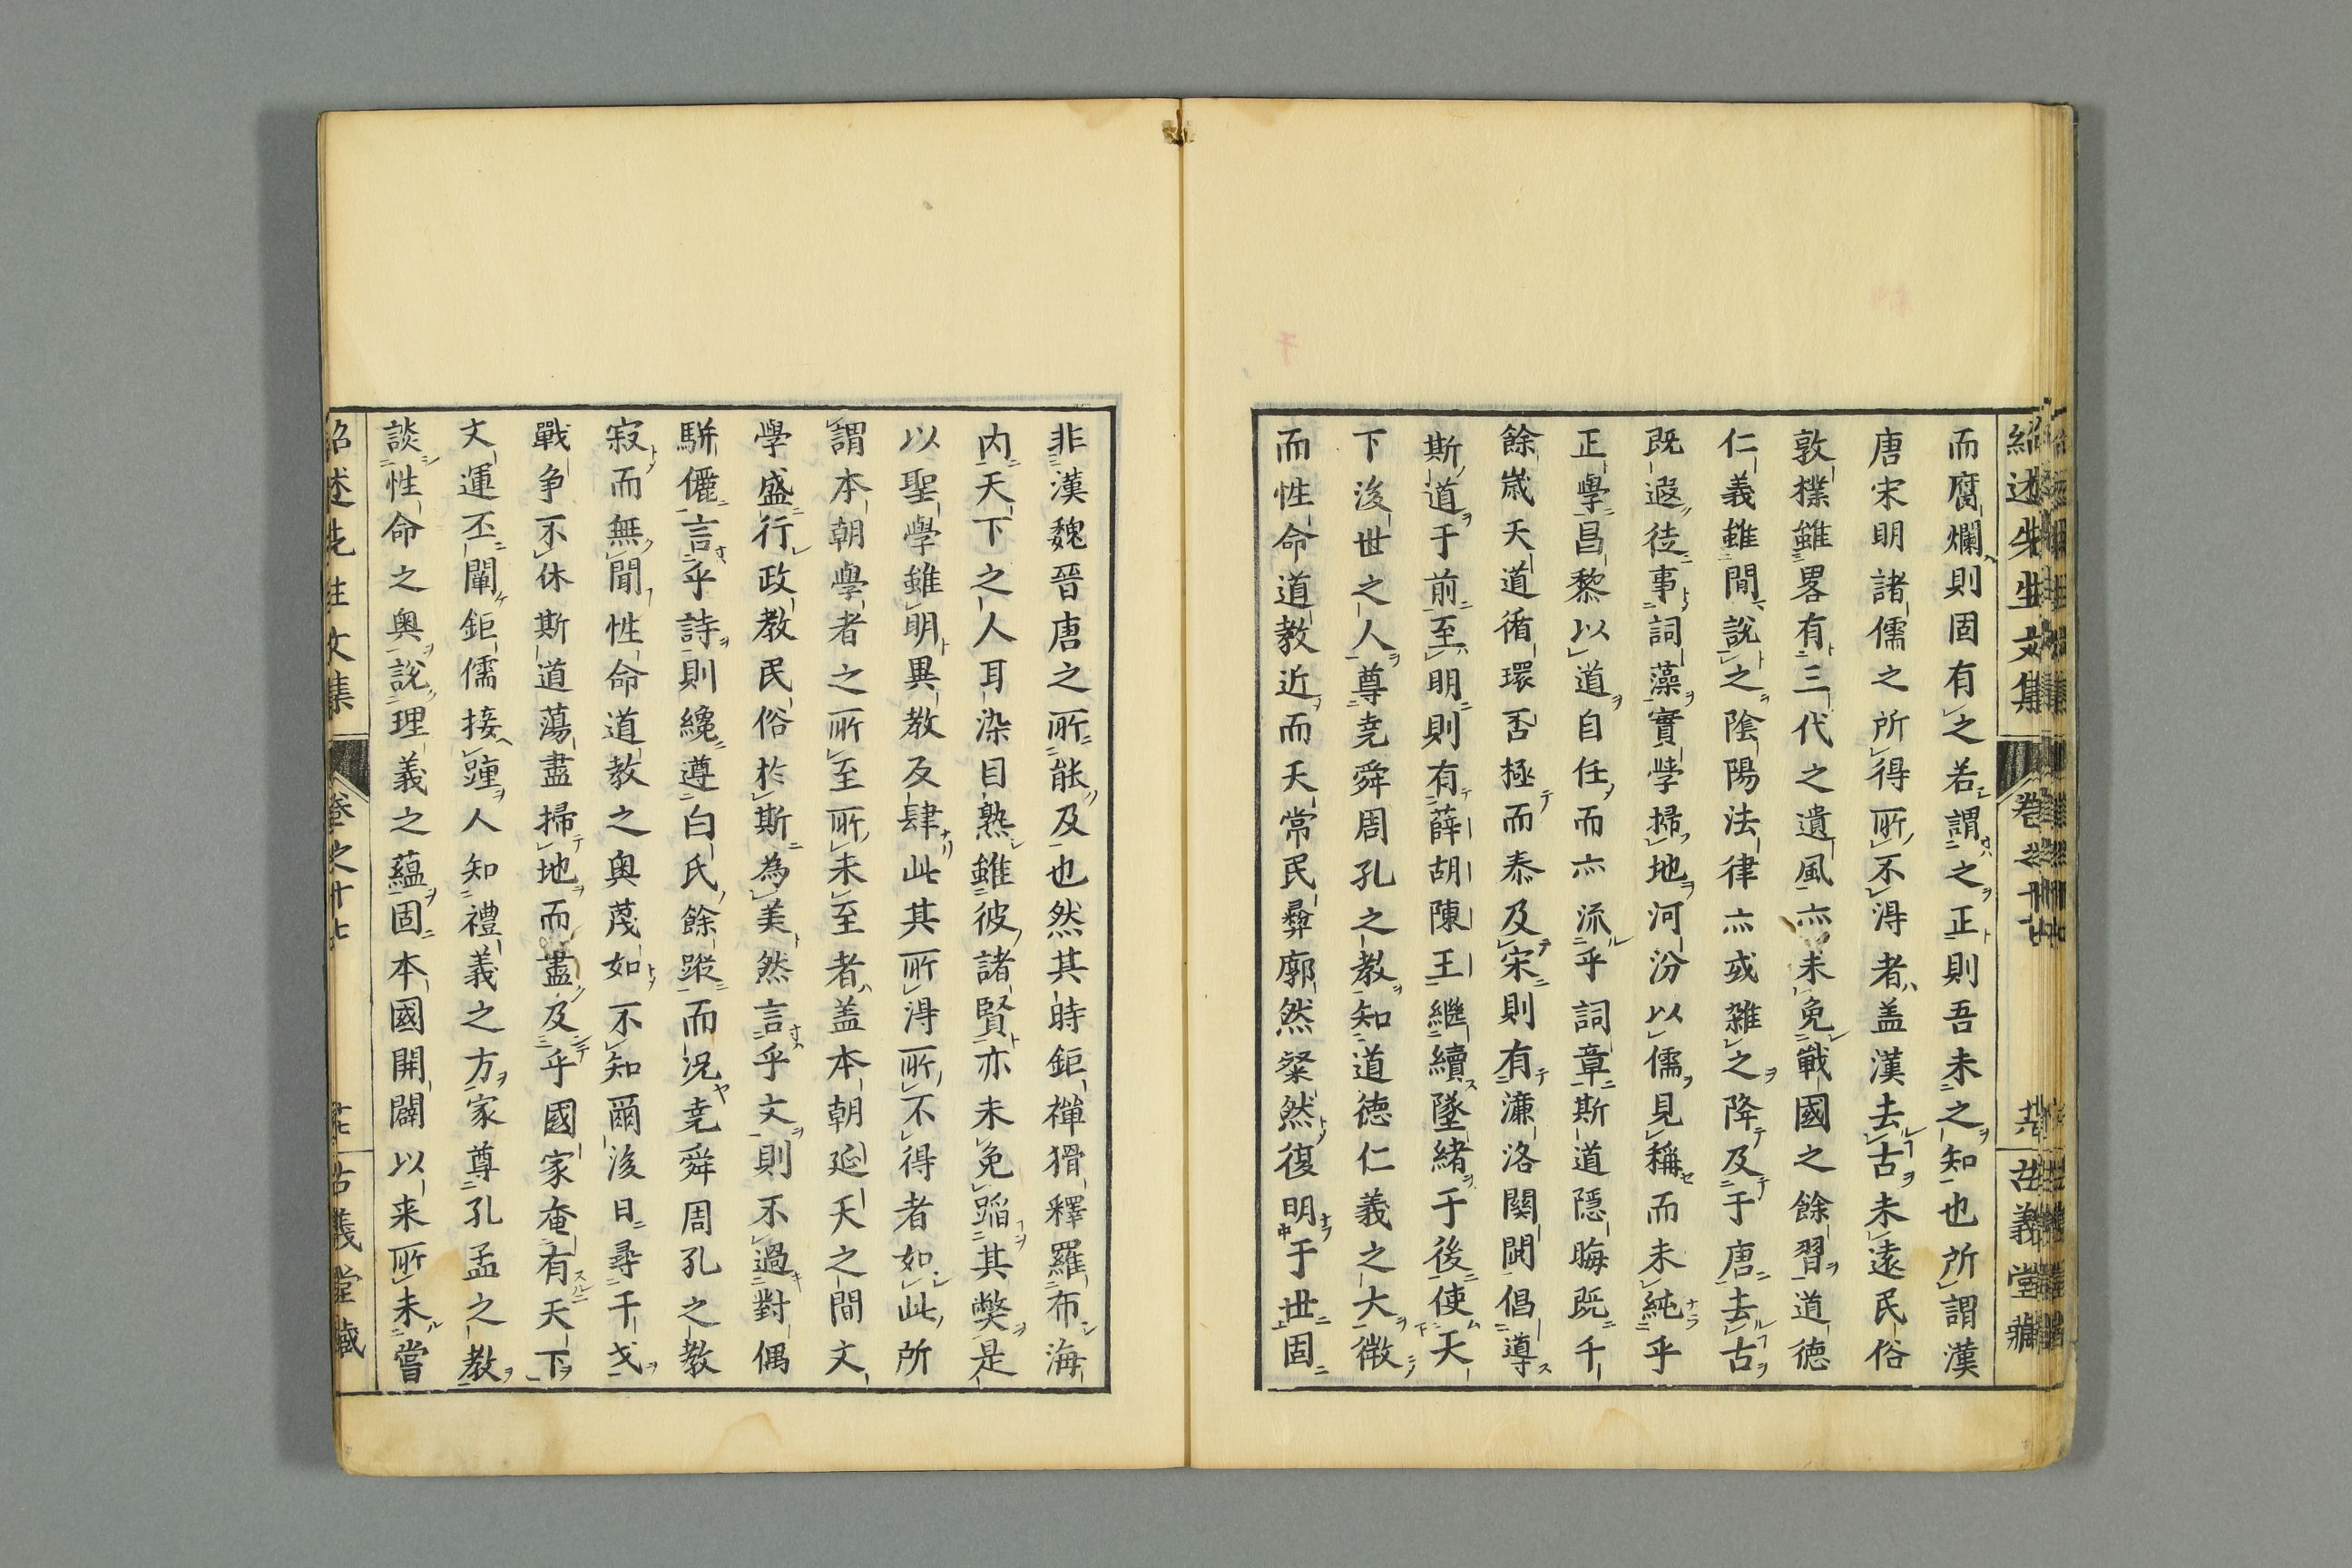 紹述先生文集 卷之十七 古義堂藏
而腐爛則固有之若謂之正則吾未之知也所謂漢
唐宋明諸儒之所得所不淂者盖漢去古未遠民俗
敦樸雖畧有三代之遺風亦未免戰國之餘習道徳
仁義雖閒說之陰陽法律亦或雜之降及于唐去古
既遐徒事詞藻實學掃地河汾以儒見稱而未純乎
正學昌黎以道自任而亦流乎詞章斯道隱晦既千
餘歳天道循環否極而泰及宋則有濂洛關閩倡導
斯道于前至明則有薛胡陳王繼續墜緒于後使天
下後世之人尊尭舜周孔之教知道徳仁義之大徴
而性命道教近而天常民彛廓然粲然復明于世固
非漢魏晉唐之所能及也然其時鉅禪猾釋羅布海
内天下之人耳染目熟雖彼諸賢亦未免蹈其獘是
以聖學雖明異教及肆此其所淂所不得者如此所
謂本朝學者之所至所未至者盖本朝延天之間文
學盛行政教民俗於斯為美然言乎文則不過對偶
駢儷言乎詩則纔遵白氏餘蹤而況尭舜周孔之教
寂而無聞性命道教之奥蔑如不知爾後日尋干戈
戰争不休斯道蕩盡掃地而盡及乎國家奄有天下
文運丕闡鉅儒接踵人知禮義之方家尊孔孟之教
談性命之奥說理義之蘊固本國開闢以来所未嘗
紹述先生文集 卷之十七 古義堂藏